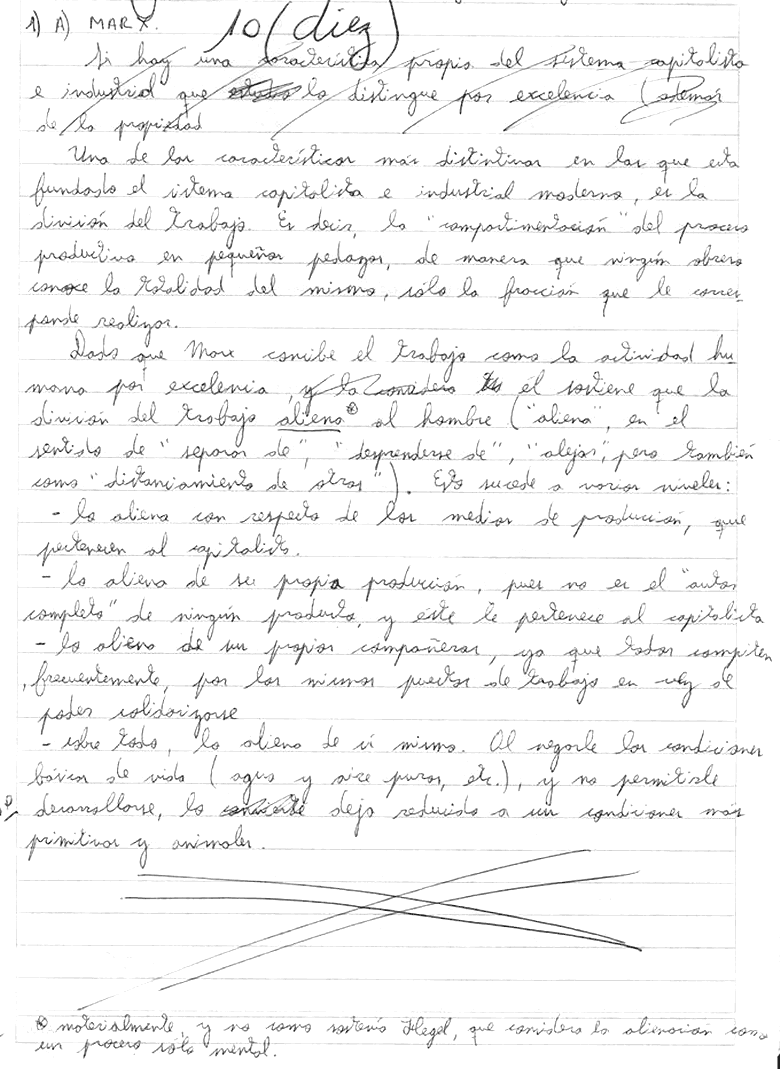 1) A) MARX. 10 (diez)
Si hay una característica propia del sistema capitalista
e industrial que lo distingue por excelencia (además
de la propiedad
Una de las características más distintivas en las que esta
fundado el sistema capitalista e industrial moderno, es la
división del trabajo. Es decir, la "compartimentación" del proceso
productivo en pequeños pedazos, de manera que ningún obrero
conoce la totalidad del mismo, sólo la fracción que le corres-
ponde realizar.
Dado que Marx concibe el trabajo como la actividad hu
mana por excelencia, y la considera él sostiene que la
división del trabajo aliena⊛ al hombre ("aliena", en el
sentido de "separar de", "desprenderse de", "alejar", pero también
como "distanciamiento de otros"). Esto sucede a varios niveles:
- lo aliena con respecto de los medios de producción, que
pertenecen al capitalista.
- lo aliena de su propia producción, pues no es el "autor
completo" de ningún producto, y éste le pertenece al capitalista
- lo aliena de sus propios compañeros, ya que todos compiten
, frecuentemente, por los mismos puestos de trabajo en vez de
poder solidarizarse
- sobre todo, lo aliena de sí mismo. Al negarle las condiciones
básicas de vida (agua y aire puros, etc.), y no permitirle
desarrollarse, lo deja reducido a sus condiciones más
primitivas y animales.
⊛ materialmente, y no como sostenía Hegel, que considera la alienación como
un proceso sólo mental.